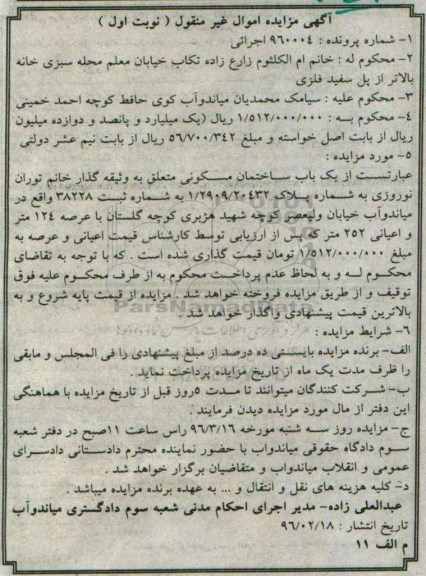 آگهی مزایده اموال غیر منقول ( نوبت اول )
۱- شماره پرونده : ۹۶۰۰۰۴ اجرائی
۲- محکوم له : خانم ام الکلثوم زارع زاده تکاب خیابان معلم محله سبزی خانه
بالاتر از پل سفید فلزی
۳- محکوم علیه : سیامک محمدیان میاندوآب کوی حافظ کوچه احمد خمینی
۴- محکوم بـه : ۱/۵۱۲/۰۰۰/۰۰۰ ریال (یک میلیارد و پانصد و دوازده میلیون
ریال از بابت اصل خواسته و مبلغ ۵۶/۷۰۰/۳۴۲ ریال از بابت نیم عشر دولتی
۵- مورد مزایده :
عبارتست از یک باب ساختمان مسکونی متعلق به وثیقه گذار خانم توران
نوروزی به شماره پلاک ۱/۲۹۰۹/۲۰۴۳۲ به شماره ثبت ۳۸۲۲۸ واقع در
میاندوآب خیابان ولیعصر کوچه شهید هژبری کوچه گلستان با عرصه ۱۲۴ متر
و اعیانی ۲۵۲ متر که پس از ارزیابی توسط کارشناس قیمت اعیانی و عرصه به
مبلغ ۱/۵۱۲/۰۰۰/۰۰۰ تومان قیمت گذاری شده است . که با توجه به تقاضای
محکوم لـه و به لحاظ عدم پرداخت محکوم به از طرف محکوم علیه فوق
توقیف و از طریق مزایده فروخته خواهد شد . مزایده از قیمت پایه شروع و به
بالاترین قیمت پیشنهادی واگذار خواهد شد .
ParsNamadData
۶- شرایط مزایده :
الف- برنده مزایده بایستی ده درصد از مبلغ پیشنهادی را فی المجلس و مابقی
را ظرف مدت یک ماه از تاریخ مزایده پرداخت نماید .
ب- شرکت کنندگان میتوانند تا مدت ۵روز قبل از تاریخ مزایده با هماهنگی
این دفتر از مال مورد مزایده دیدن فرمایند .
ج- مزایده روز سه شنبه مورخه ۹۶/۳/۱۶ راس ساعت ۱۱صبح در دفتر شعبه
سوم دادگاه حقوقی میاندواب با حضور نماینده محترم دادستانی دادسرای
عمومی و انقلاب میاندواب و متقاضیان برگزار خواهد شد .
د- کلیه هزینه های نقل و انتقال و ... به عهده برنده مزایده میباشد .
عبدالعلی زاده- مدیر اجرای احکام مدنی شعبه سوم دادگستری میاندوآب
تاریخ انتشار : ۹۶/۰۲/۱۸
م الف ۱۱